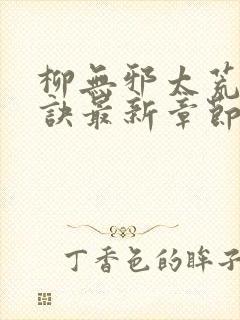 柳無邪太荒
訣最新章節
丁香色的眸子